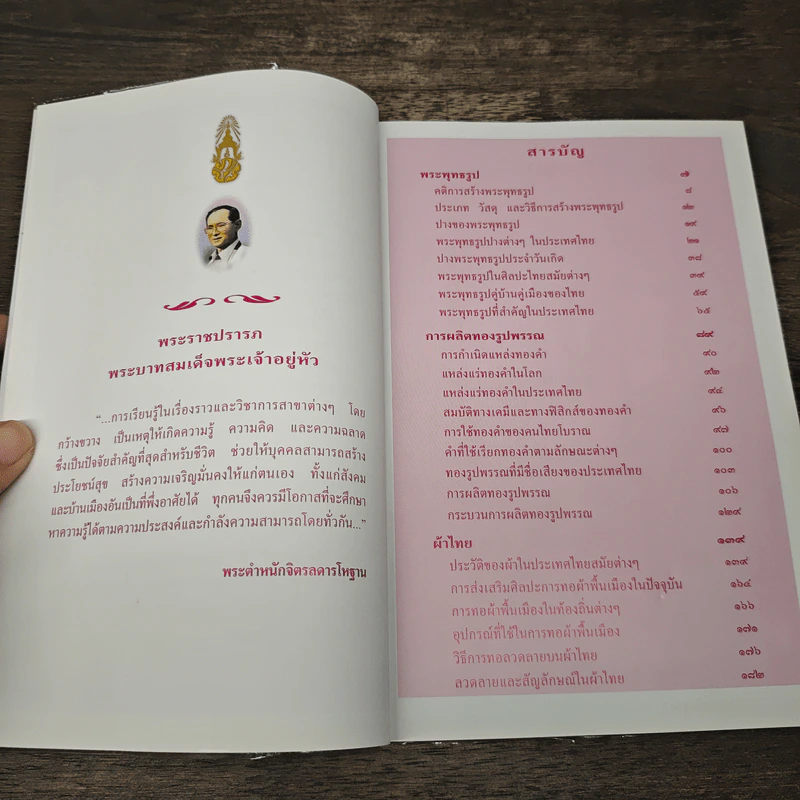 พระราชปรารภ
พระบาทสมเด็จพระเจ้าอยู่หัว
“...การเรียนรู้ในเรื่องราวและวิชาการสาขาต่างๆ โดย
กว้างขวาง เป็นเหตุให้เกิดความรู้ ความคิด และความฉลาด
ซึ่งเป็นปัจจัยสำคัญที่สุดสำหรับชีวิต ช่วยให้บุคคลสามารถสร้าง
ประโยชน์สุข สร้างความเจริญมั่นคงให้แก่ตนเอง ทั้งแก่สังคม
และบ้านเมืองอันเป็นที่พึ่งอาศัยได้ ทุกคนจึงควรมีโอกาสที่จะศึกษา
หาความรู้ได้ตามความประสงค์และกำลังความสามารถโดยทั่วกัน...”
พระตำหนักจิตรลดารโหฐาน
สารบัญ
พระพุทธรูป ๗
คติการสร้างพระพุทธรูป ๘
ประเภท วัสดุ และวิธีการสร้างพระพุทธรูป ๑๒
ปางของพระพุทธรูป ๑๙
พระพุทธรูปปางต่างๆ ในประเทศไทย ๒๑
ปางพระพุทธรูปประจำวันเกิด ๓๘
พระพุทธรูปในศิลปะไทยสมัยต่างๆ ๓๙
พระพุทธรูปคู่บ้านคู่เมืองของไทย ๕๙
พระพุทธรูปที่สำคัญในประเทศไทย ๖๕
การผลิตทองรูปพรรณ ๘๙
การกำเนิดแหล่งทองคำ ๙๐
แหล่งแร่ทองคำในโลก ๙๒
แหล่งแร่ทองคำในประเทศไทย ๙๔
สมบัติทางเคมีและทางฟิสิกส์ของทองคำ ๙๖
การใช้ทองคำของคนไทยโบราณ ๙๗
คำที่ใช้เรียกทองคำตามลักษณะต่างๆ ๑๐๐
ทองรูปพรรณที่มีชื่อเสียงของประเทศไทย ๑๐๓
การผลิตทองรูปพรรณ ๑๐๖
กระบวนการผลิตทองรูปพรรณ ๑๒๙
ผ้าไทย ๑๓๙
ประวัติของผ้าในประเทศไทยสมัยต่างๆ ๑๓๙
การส่งเสริมศิลปะการทอผ้าพื้นเมืองในปัจจุบัน ๑๖๔
การทอผ้าพื้นเมืองในท้องถิ่นต่างๆ ๑๖๖
อุปกรณ์ที่ใช้ในการทอผ้าพื้นเมือง ๑๗๑
วิธีการทอลวดลายบนผ้าไทย ๑๗๖
ลวดลายและสัญลักษณ์ในผ้าไทย ๑๘๒